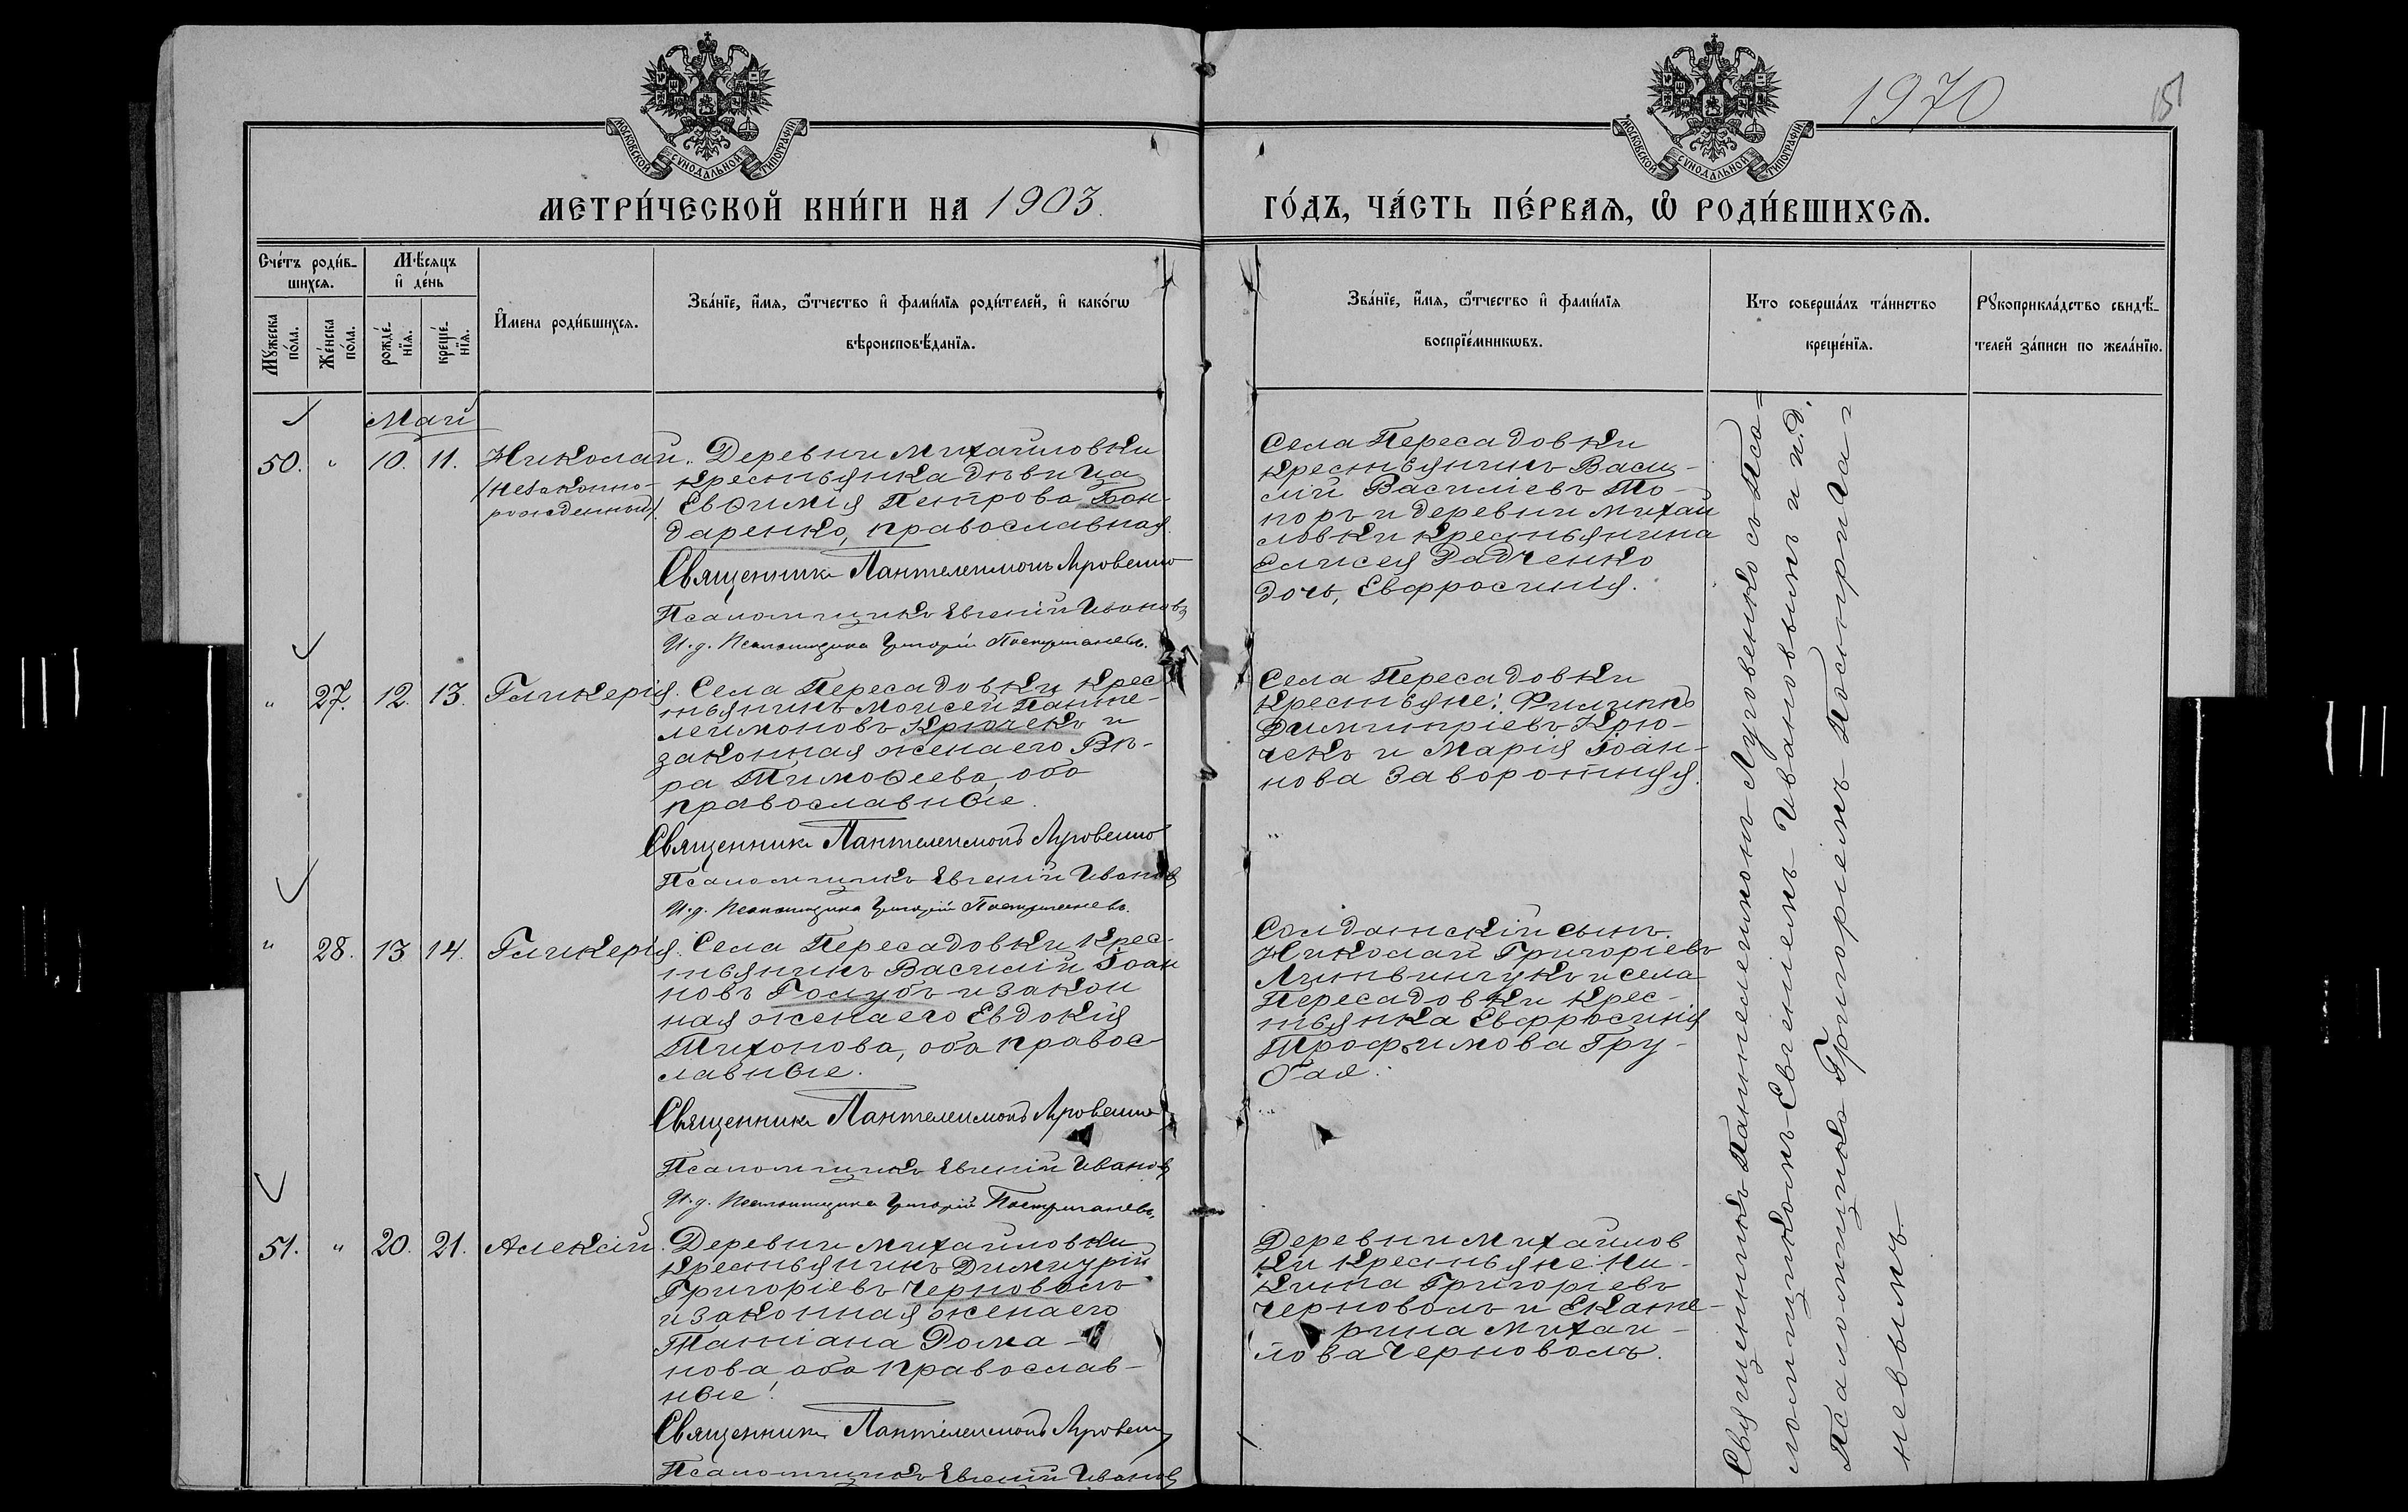 1970
151
МОСКОВСКОЙ СѴНОДАЛЬНОЙ ТИПОГРАФІИ
МОСКОВСКОЙ СѴНОДАЛЬНОЙ ТИПОГРАФІИ
МЕТРИ́ЧЕСКОЙ КНИ́ГИ НА 1903.
ГО́ДЪ, ЧА́СТЬ ПЕ́РВАѦ, Ѡ҆ РОДИ́ВШИХСѦ.
Сче́тъ роди́в-
шихсѧ.
Мꙋ́жеска
по́ла.
Же́нска
по́ла.
Мѣ́сѧцъ
и҆ де́нь
рожде́-
нїѧ.
креще́-
нїѧ.
И҆мена роди́вшихсѧ.
Зва́нїе, и҆́мѧ, ѻ҆́тчество и҆ фами́лїѧ роди́телей, и҆ како́гѡ
вѣроисповѣ́данїѧ.
Зва́нїе, и҆́мѧ, ѻ҆́тчество и҆ фами́лїѧ
воспрїе́мникѡвъ.
Кто соверша́лъ та́инство
креще́нїѧ.
Рꙋкоприкла́дство свидѣ́-
телей за́писи по жела́нїю.
Май
50. " 10. 11. Николай
/незаконно-
рожденный/.
Деревни Михайловки
крестьянка дѣвица
Евѳимія Петрова Бон-
даренко, православная.
Священникъ Пантелеимонъ Луговенко
Псаломщикъ Евгеній Ивановъ
И. д. Псаломщика Григорій Постриганевъ.
Села Пересадовки
крестьянинъ Васи-
лій Василіевъ То-
поръ и деревни Михай
ловки крестьянина
Елисея Радченко
дочь, Евфросинія.
" 27. 12. 13. Гликерія.
Села Пересадовки крес-
тьянинъ Моисей Панте-
леимоновъ Крючекъ и
законная жена его Вѣ-
ра Тимоѳеева, оба
православные.
Священникъ Пантелеимонъ Луговенко
Псаломщикъ Евгеній Ивановъ
И. д. Псаломщика Григорій Постриганевъ.
Села Пересадовки
крестьяне: Филиппъ
Димитріевъ Крю-
чекъ и Марія Іоан-
нова Заворотняя.
" 28. 13 14. Гликерія.
Села Пересадовки крес-
тьянинъ Василій Іоан
новъ Голубъ и закон
ная жена его Евдокія
Тихонова, оба правос-
лавные.
Священникъ Пантелеимонъ Луговенко
Псаломщикъ Евгеній Ивановъ
И. д. Псаломщика Григорій Постриганевъ.
Солдатскій сынъ
Николай Григоріевъ
Литвинчукъ и села
Пересадовки крес-
тьянка Евфросинія
Трофимова Гру-
бая.
51. " 20. 21. Алексій.
Деревни Михайловки
крестьянинъ Димитрій
Григоріевъ Черноволъ
и законная жена его
Татіана Рома-
нова, оба православ-
ные.
Священникъ Пантелеимонъ Луговенко
Псаломщикъ Евгеній Ивановъ
Деревни Михайлов
ки крестьяне Ни-
кита Григоріевъ
Черноволъ и Екате-
рина Михаи-
лова Черноволъ.
Священникъ Пантелеимонъ Луговенко съ Пса=
ломщикомъ Евгеніемъ Ивановымъ и и.д.
Псаломщика Григоріемъ Пострига-
невымъ.